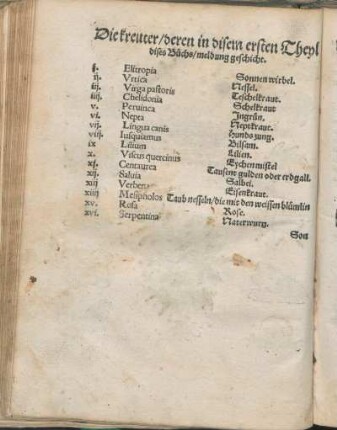 Die kreuter/deren in disem ersten Theyl
dises Bůchs/meldung geschicht.
j. Elitropia Sonnen wirbel.
ij. Vrtica Nessel.
iij. Virga pastoris Teschelkraut.
iiij. Chelidonia Schelkraut
v. Peruinca Ingrün.
vi. Nepta Neptkraut.
vij. Lingua canis Hundszung.
viij. Iusquiamus Bilsam.
ix Lilium Lilien.
x. Viscus quercinus Eychenmistel
xj. Centaurea Tausent gulden oder erdgall.
xij. Saluia Salbei.
xiij Verbena Eisenkraut.
xiiij Melispholos Taub nesseln/die mit den weissen blümlin
xv. Rosa Rose.
xvi. Serpentina Naterwurtz.
Son